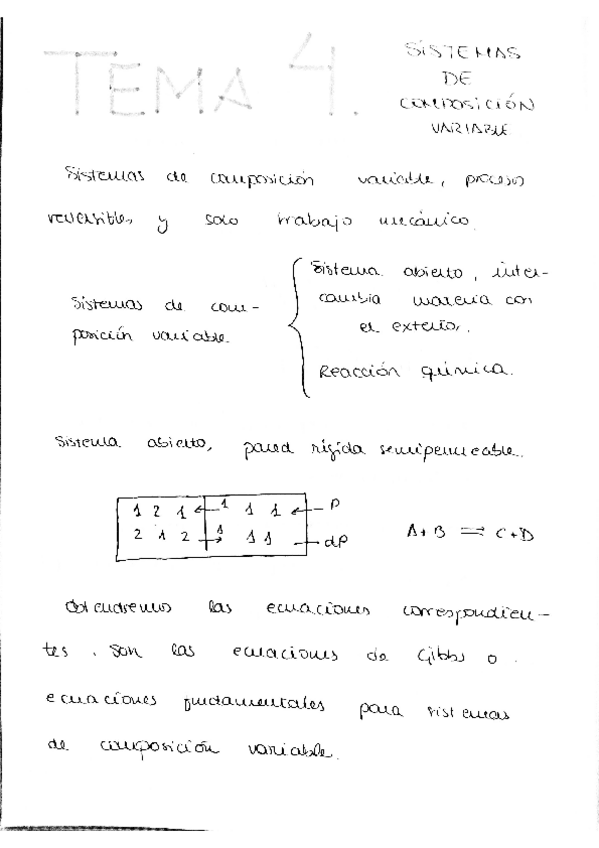 TEMA 4.
SISTEMAS
DE
COMPOSICIÓN
VARIABLE
Sistemas de composición variable, procesos
reversibles y solo trabajo mecánico.
Sistemas de com-
posición variable.
Sistema abierto, inter-
cambia materia con
el exterior.
Reacción química.
Sistema abierto, pared rígida semipermeable.
1 2 1 ← 1 1 1 ← P
2 1 2 → 1 1 1 → dP
A + B ⇌ C + D
Obtendremos las ecuaciones correspondien-
tes. Son las ecuaciones de Gibbs o
ecuaciones fundamentales para sistemas
de composición variable.